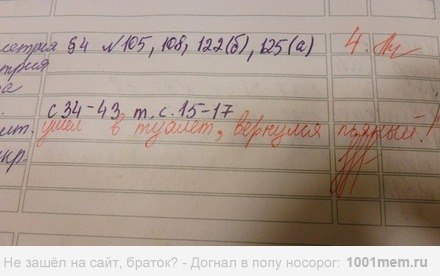 метрия §4 №105, 108, 122(б), 125(а) 4.
трия
а
с 34-43, т. с. 15-17
ит. ушёл в туалет, вернулся пьяный!
кр-
Не зашёл на сайт, браток? - Догнал в попу носорог: 1001mem.ru